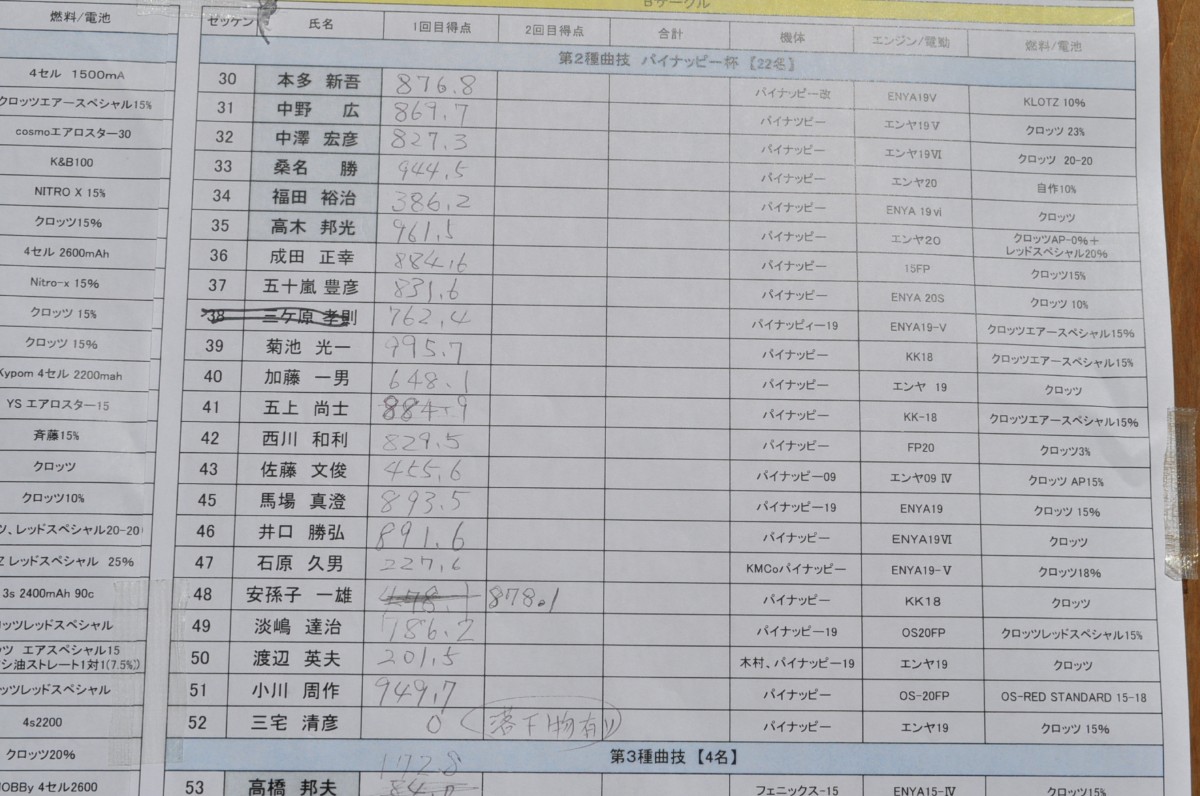 Bサークル
燃料/電池
4セル 1500mA
クロッツエアースペシャル15%
cosmoエアロスター30
K&B100
NITRO X 15%
クロッツ15%
4セル 2600mAh
Nitro-x 15%
クロッツ 15%
クロッツ 15%
Kypom 4セル 2200mah
YS エアロスター15
斉藤15%
クロッツ
クロッツ10%
ツ、レッドスペシャル20-20
Z レッドスペシャル 25%
3s 2400mAh 90c
ロッツレッドスペシャル
ツ エアスペシャル15
シ油ストレート1対1(7.5%)
ッツレッドスペシャル
4s2200
クロッツ20%
HOBBy 4セル2600
ゼッケン 氏名 1回目得点 2回目得点 合計 機体 エンジン/電動 燃料/電池
第2種曲技 パイナッピー杯【22名】
30 本多 新吾 876.8 パイナッピー改 ENYA19V KLOTZ 10%
31 中野 広 869.7 パイナツピー エンヤ19V クロッツ 23%
32 中澤 宏彦 827.3 パイナッピー エンヤ19VI クロッツ 20-20
33 桑名 勝 944.5 パイナッピー エンヤ20 自作10%
34 福田 裕治 386.2 パイナッピー ENYA 19vi クロッツ
35 高木 邦光 961.5 パイナッピー エンヤ20 クロッツAP-0%+レッドスペシャル20%
36 成田 正幸 884.6 パイナッピー 15FP クロッツ15%
37 五十嵐 豊彦 831.6 パイナッピー ENYA 20S クロッツ 10%
38 三ケ原 孝則 762.4 パイナッピィー19 ENYA19-V クロッツエアースペシャル15%
39 菊池 光一 995.7 パイナッピー KK18 クロッツエアースペシャル15%
40 加藤 一男 648.1 パイナッピー エンヤ 19 クロッツ
41 五上 尚士 884.9 パイナッピー KK-18 クロッツエアースペシャル15%
42 西川 和利 829.5 パイナッピー FP20 クロッツ3%
43 佐藤 文俊 455.6 パイナッピー09 エンヤ09 IV クロッツ AP15%
45 馬場 真澄 893.5 パイナッピー19 ENYA19 クロッツ 15%
46 井口 勝弘 891.6 パイナッピー ENYA19VI クロッツ
47 石原 久男 227.6 KMCoパイナッピー ENYA19-V クロッツ18%
48 安孫子 一雄 478.1 878.1 パイナッピー KK18 クロッツ
49 淡嶋 達治 786.2 パイナッピー19 OS20FP クロッツレッドスペシャル15%
50 渡辺 英夫 201.5 木村、パイナッピー19 エンヤ19 クロッツ
51 小川 周作 949.7 パイナッピー OS-20FP OS-RED STANDARD 15-18
52 三宅 清彦 0 (落下物有り) パイナッピー エンヤ19 クロッツ 15%
第3種曲技【4名】
53 高橋 邦夫 172.8 フェニックス-15 ENYA15-IV クロッツ15%